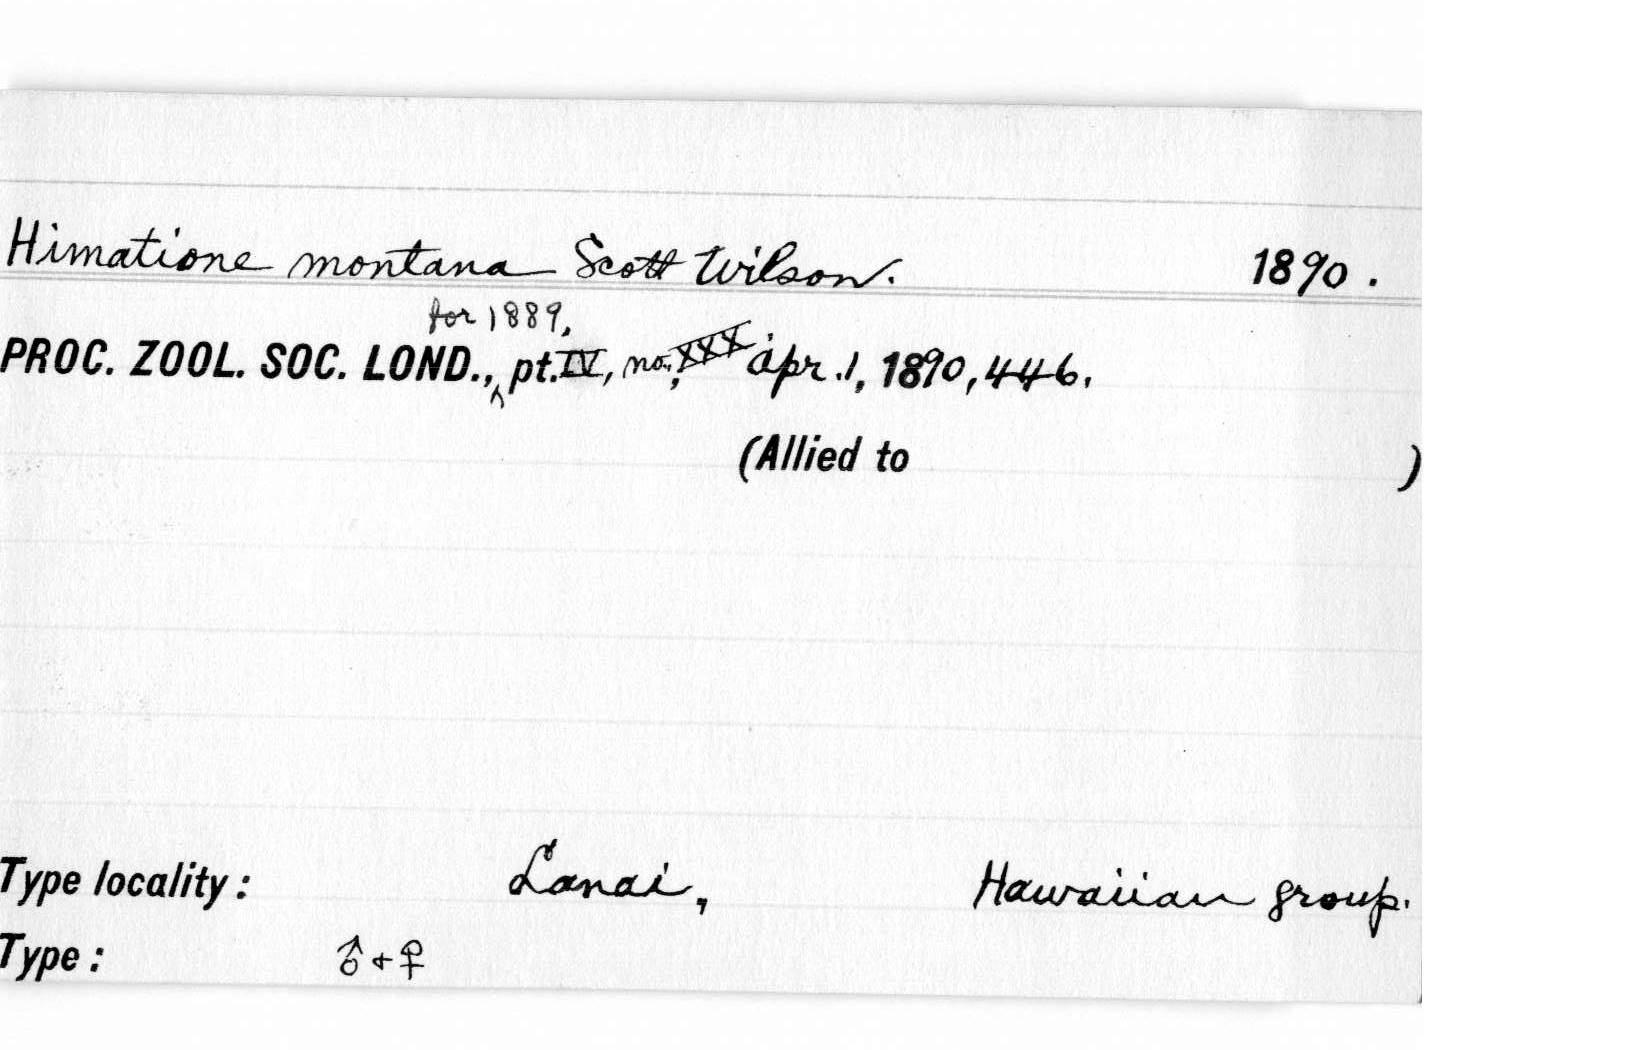 Himatione montana Scott Wilson. 1890.
for 1889,
PROC. ZOOL. SOC. LOND., pt. IV, no., XXX Apr. 1, 1890, 446.
(Allied to )
Type locality: Lanai, Hawaiian group.
Type: ♂ + ♀